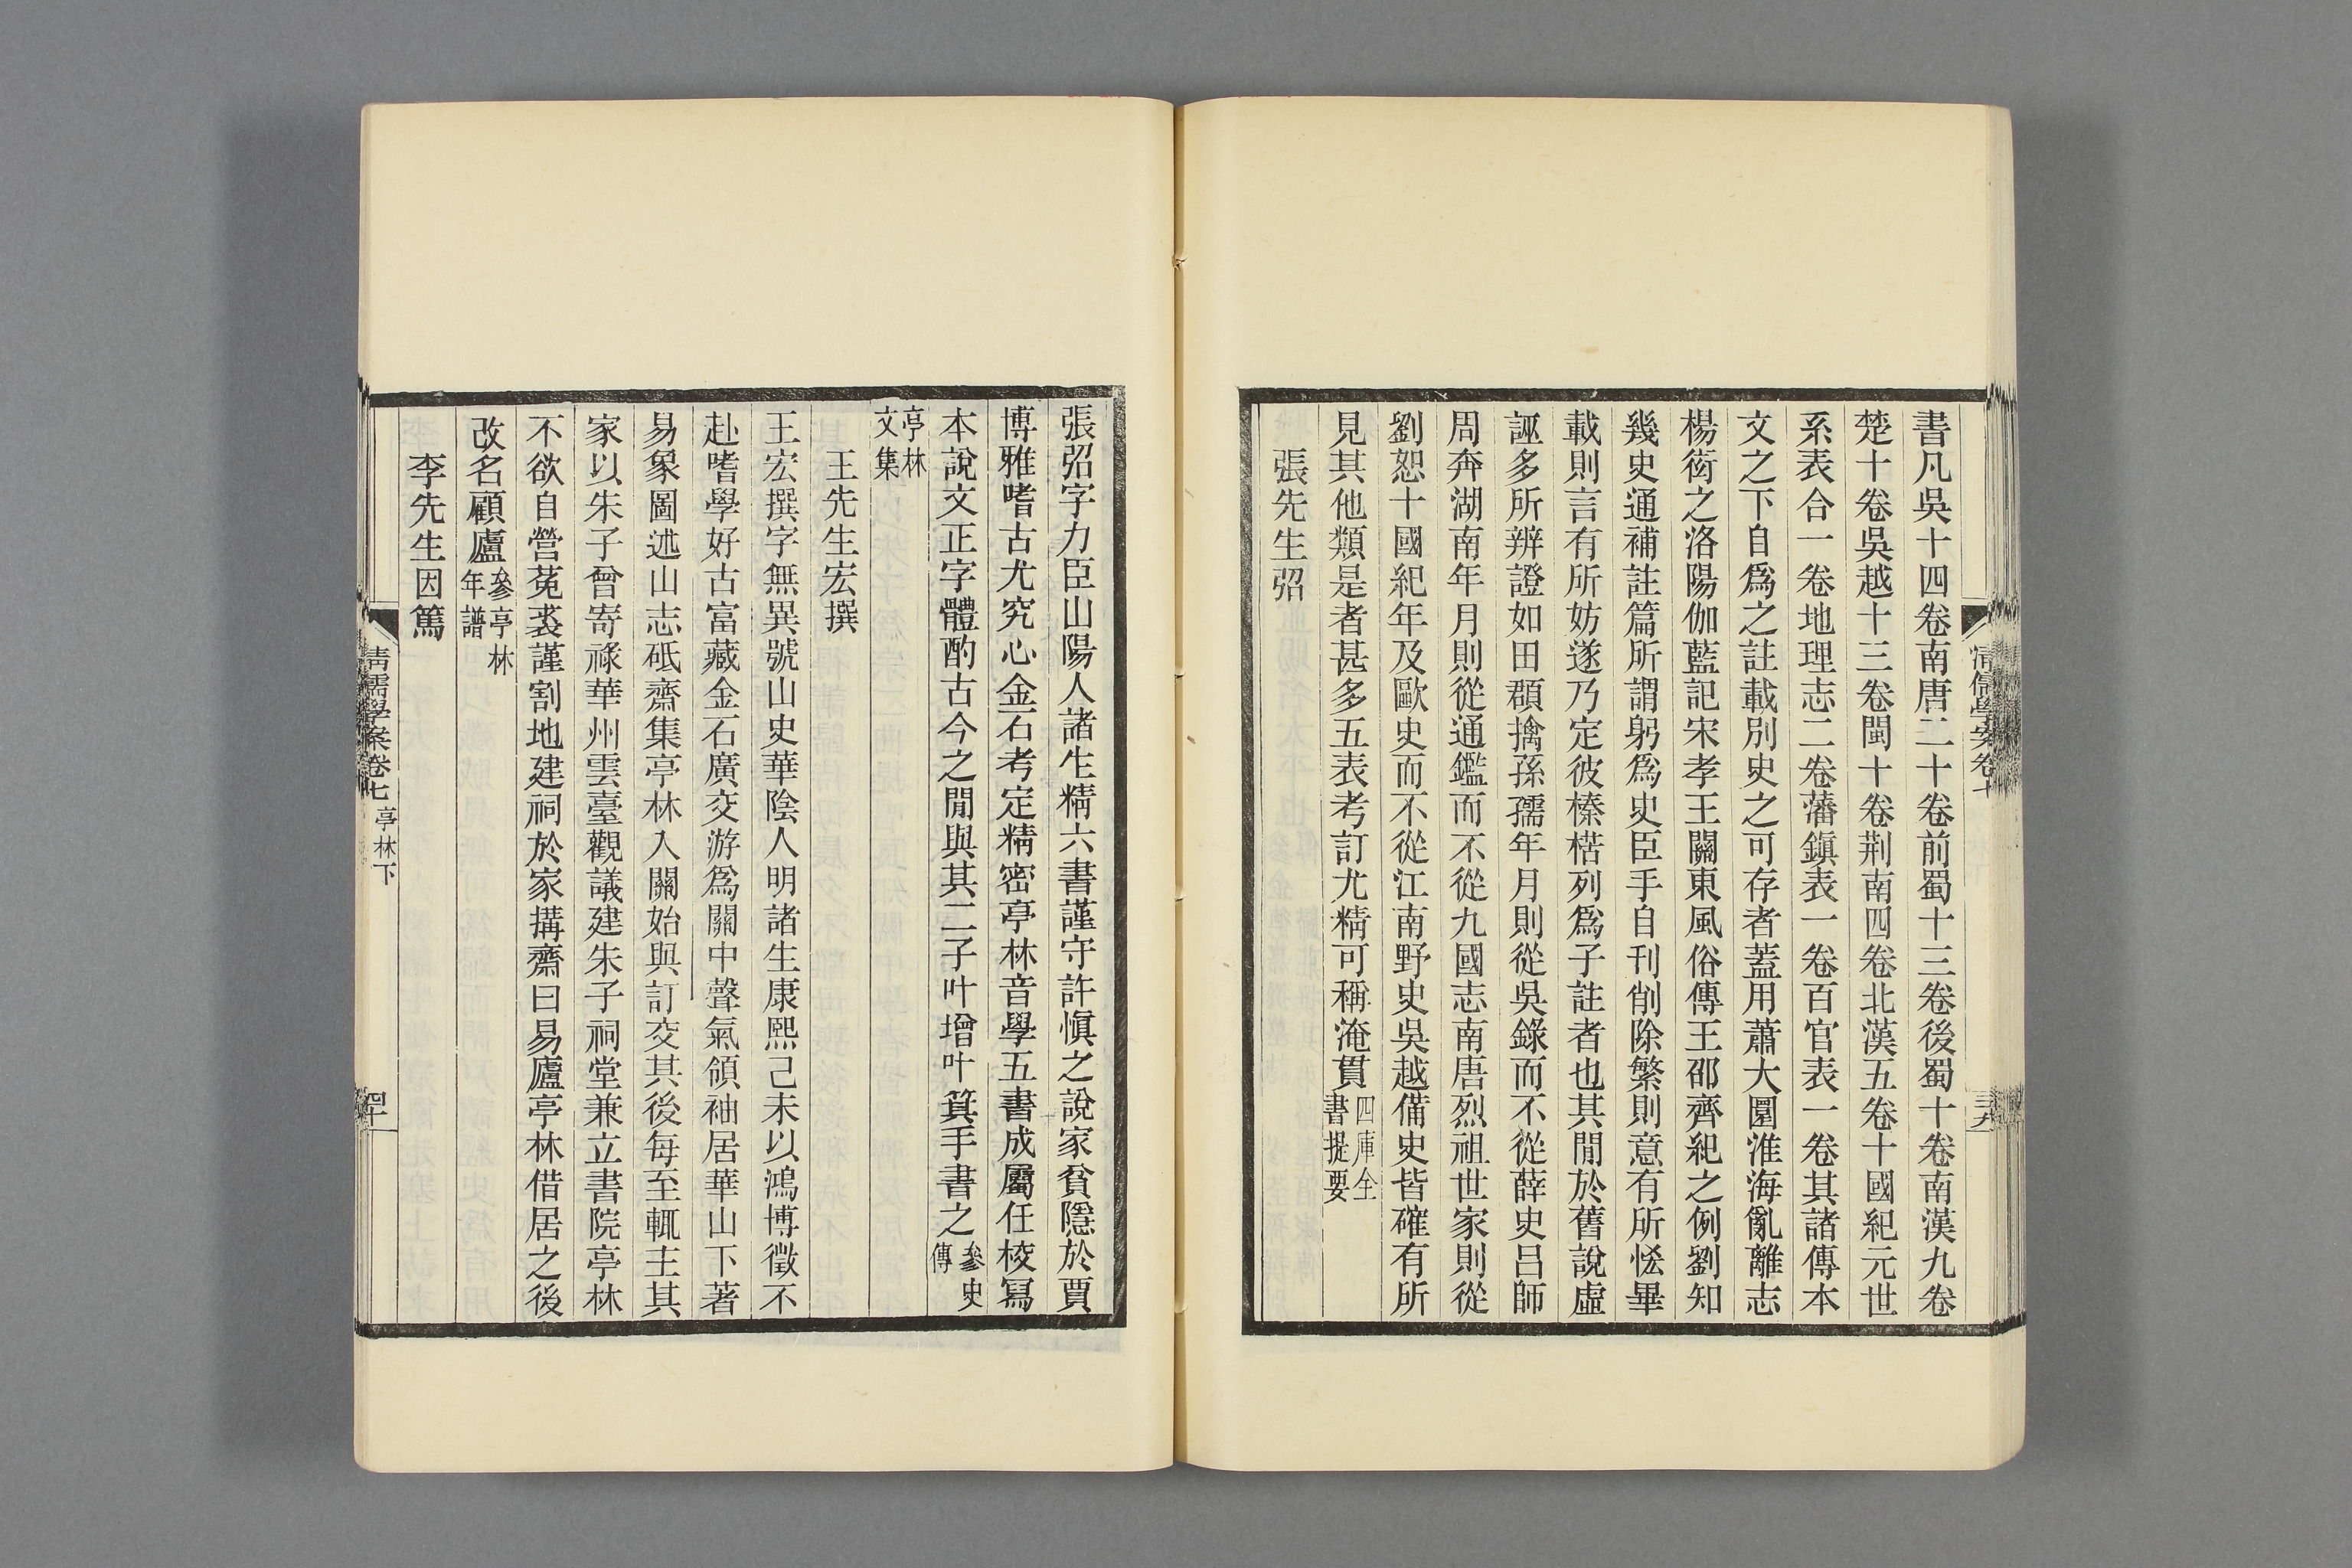 書凡吳十四卷南唐二十卷前蜀十三卷後蜀十卷南漢九卷
楚十卷吳越十三卷閩十卷荆南四卷北漢五卷十國紀元世
系表合一卷地理志二卷藩鎭表一卷百官表一卷其諸傳本
文之下自爲之註載別史之可存者蓋用蕭大圜淮海亂離志
楊衒之洛陽伽藍記宋孝王關東風俗傳王邵齊紀之例劉知
幾史通補註篇所謂躬爲史臣手自刊削除繁則意有所恡畢
載則言有所妨遂乃定彼榛楛列爲子註者也其閒於舊說虛
誣多所辨證如田頵擒孫孺年月則從吳錄而不從薛史呂師
周奔湖南年月則從通鑑而不從九國志南唐烈祖世家則從
劉恕十國紀年及歐史而不從江南野史吳越備史皆確有所
見其他類是者甚多五表考訂尤精可稱淹貫四庫全書提要
張先生弨
張弨字力臣山陽人諸生精六書謹守許愼之說家貧隱於賈
博雅嗜古尤究心金石考定精密亭林音學五書成屬任校寫
本說文正字體酌古今之閒與其二子叶增叶箕手書之參史傳
亭林文集
王先生宏撰
王宏撰字無異號山史華陰人明諸生康熙己未以鴻博徵不
赴嗜學好古富藏金石廣交游爲關中聲氣領袖居華山下著
易象圖述山志砥齋集亭林入關始與訂交其後每至輒主其
家以朱子曾寄祿華州雲臺觀議建朱子祠堂兼立書院亭林
不欲自營菟裘謹割地建祠於家搆齋曰易廬亭林借居之後
改名顧廬參亭林年譜
李先生因篤
清儒學案卷七 亭林下
四十